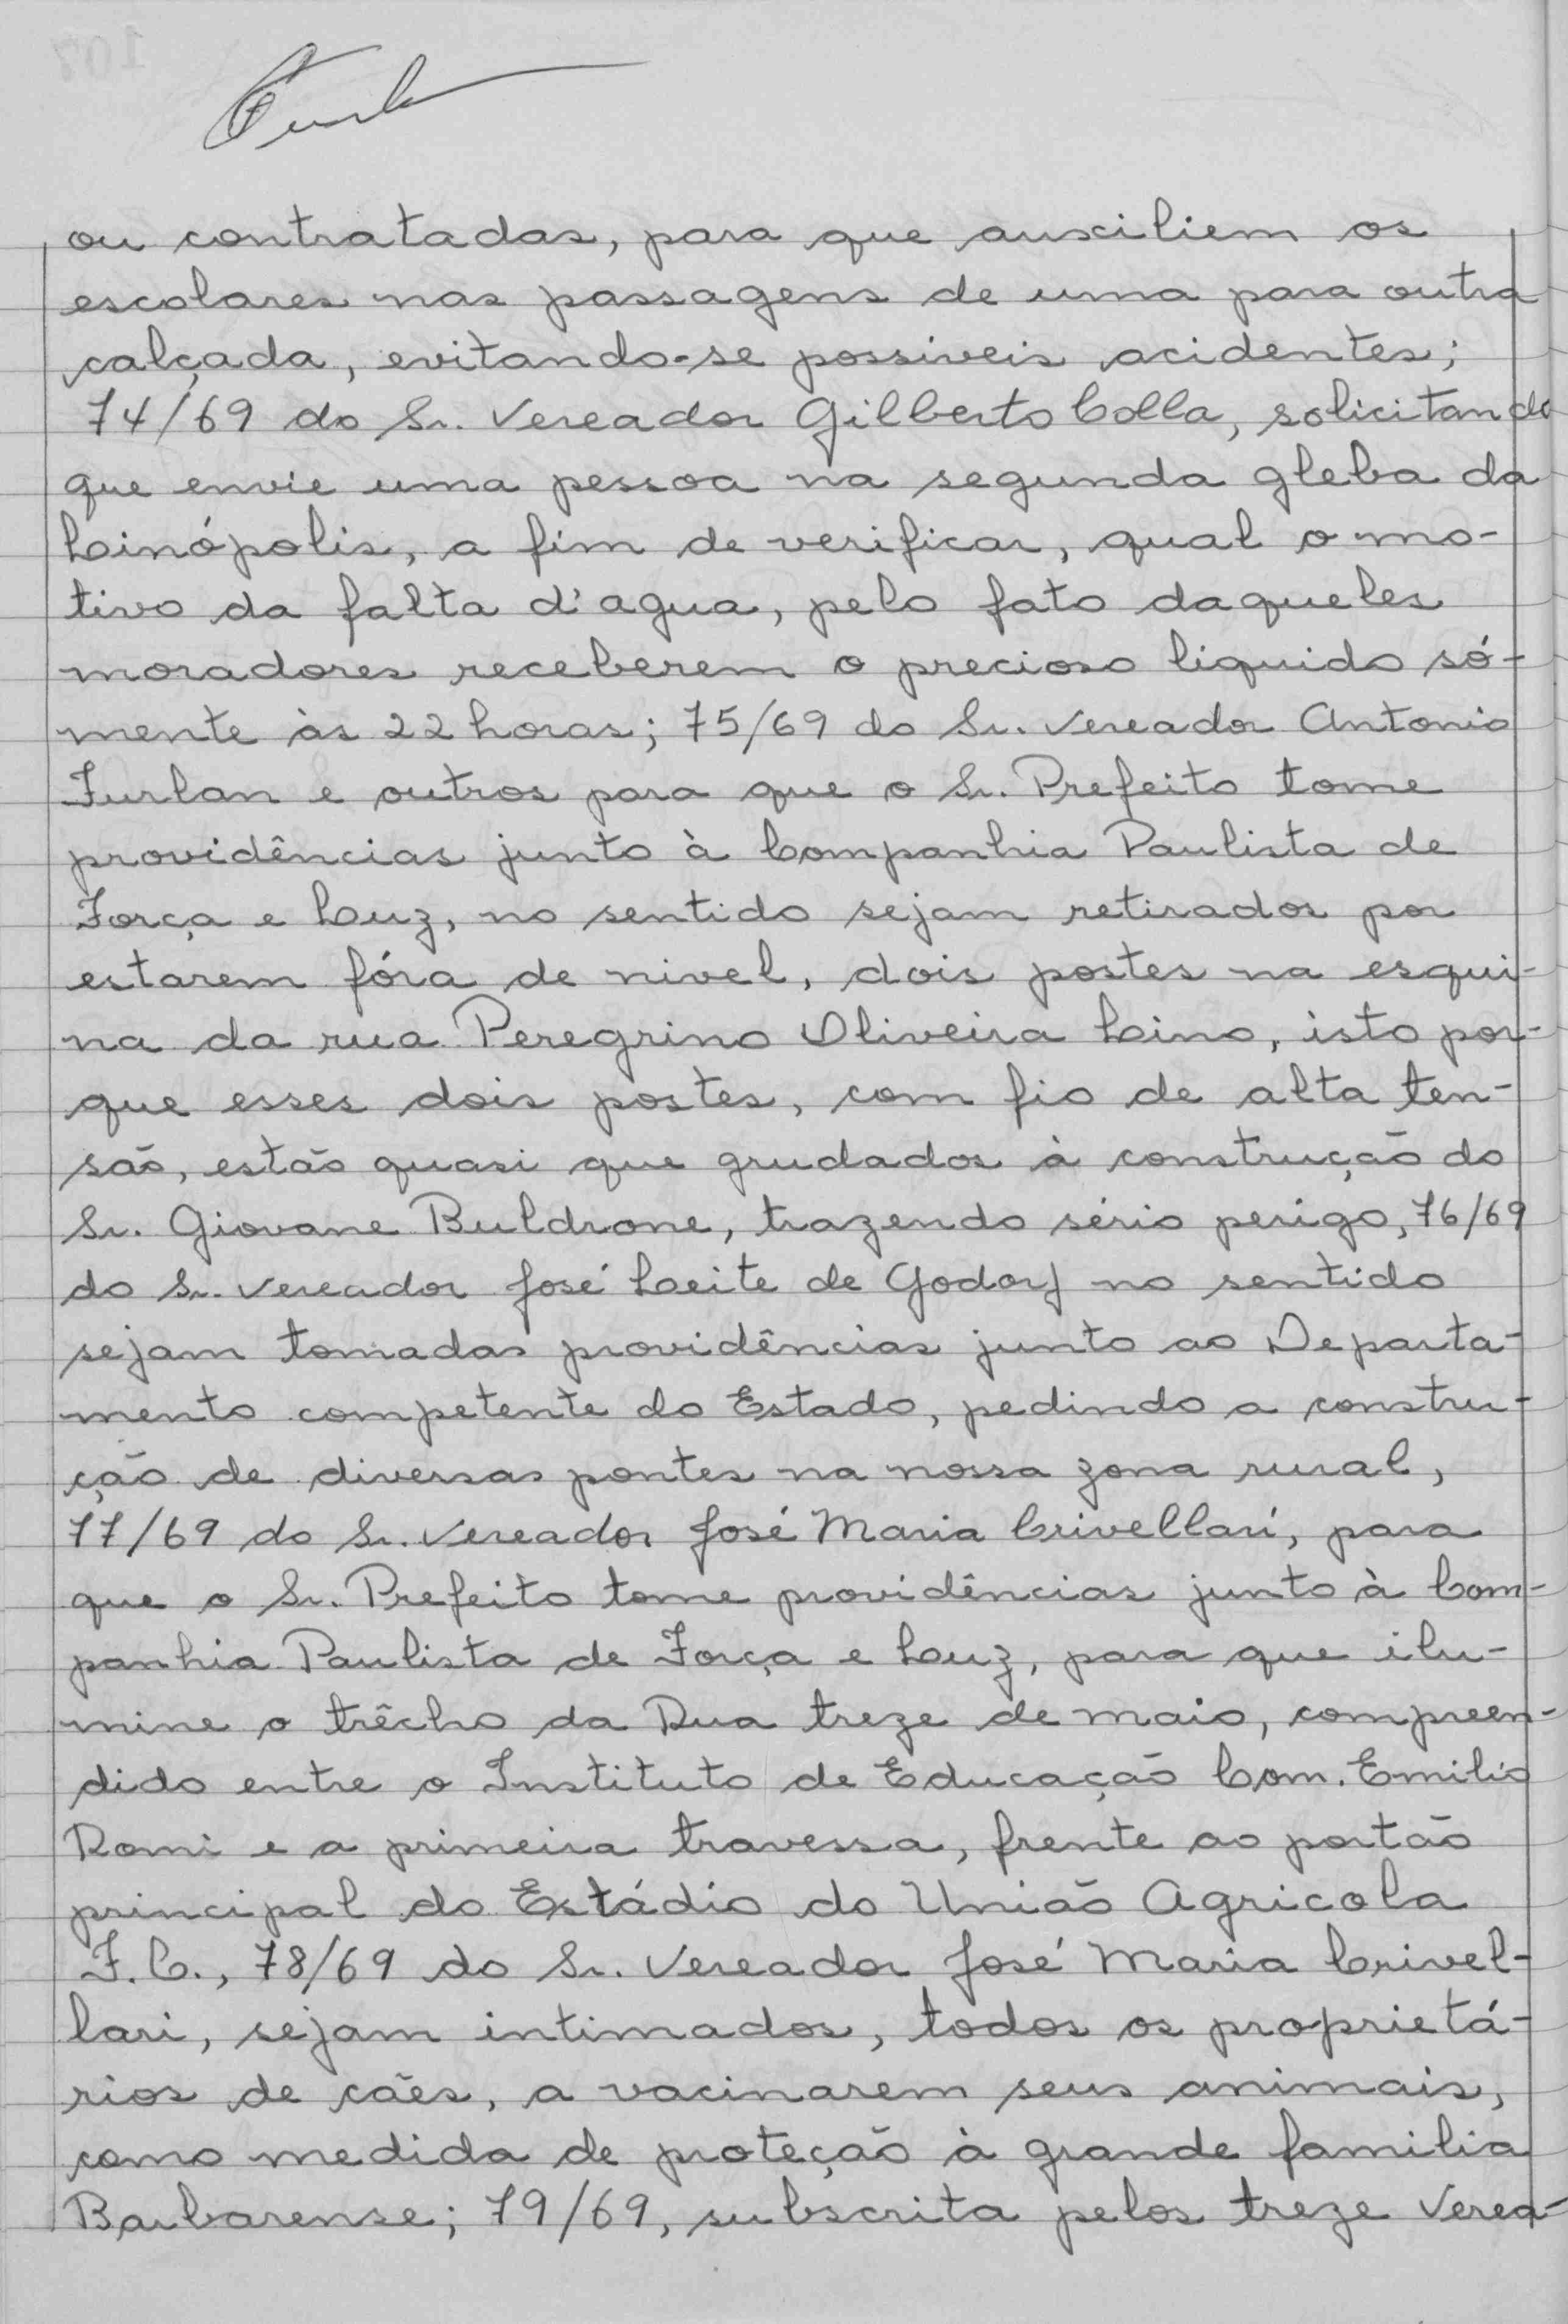 ou contratadas, para que auxiliem os
escolares nas passagens de uma para outra
calçada, evitando-se possiveis acidentes;
74/69 do Sr. Vereador Gilberto Colla, solicitando
que envie uma pessoa na segunda gleba da
Linópolis, a fim de verificar, qual o mo-
tivo da falta d'agua, pelo fato daqueles
moradores receberem o precioso liquido só-
mente às 22 horas; 75/69 do Sr. Vereador Antonio
Furlan e outros para que o Sr. Prefeito tome
providências junto à Companhia Paulista de
Força e Luz, no sentido sejam retirados por
estarem fóra de nivel, dois postes na esqui-
na da rua Peregrino Oliveira Lino, isto por-
que esses dois postes, com fio de alta ten-
são, estão quasi que grudados à construção do
Sr. Giovane Buldrone, trazendo sério perigo, 76/69
do Sr. Vereador José Leite de Godoy no sentido
sejam tomadas providências junto ao Departa-
mento competente do Estado, pedindo a constru-
ção de diversas pontes na nossa zona rural,
77/69 do Sr. Vereador José Maria Crivellari, para
que o Sr. Prefeito tome providências junto à Com-
panhia Paulista de Força e Luz, para que ilu-
mine o trêcho da Rua treze de maio, compreen-
dido entre o Instituto de Educação Com. Emilio
Romi e a primeira travessa, frente ao portão
principal do Estádio do União Agricola
F.C., 78/69 do Sr. Vereador José Maria Crivel-
lari, sejam intimados, todos os proprietá-
rios de cães, a vacinarem seus animais,
como medida de proteção à grande familia
Barbarense; 79/69, subscrita pelos treze Verea-